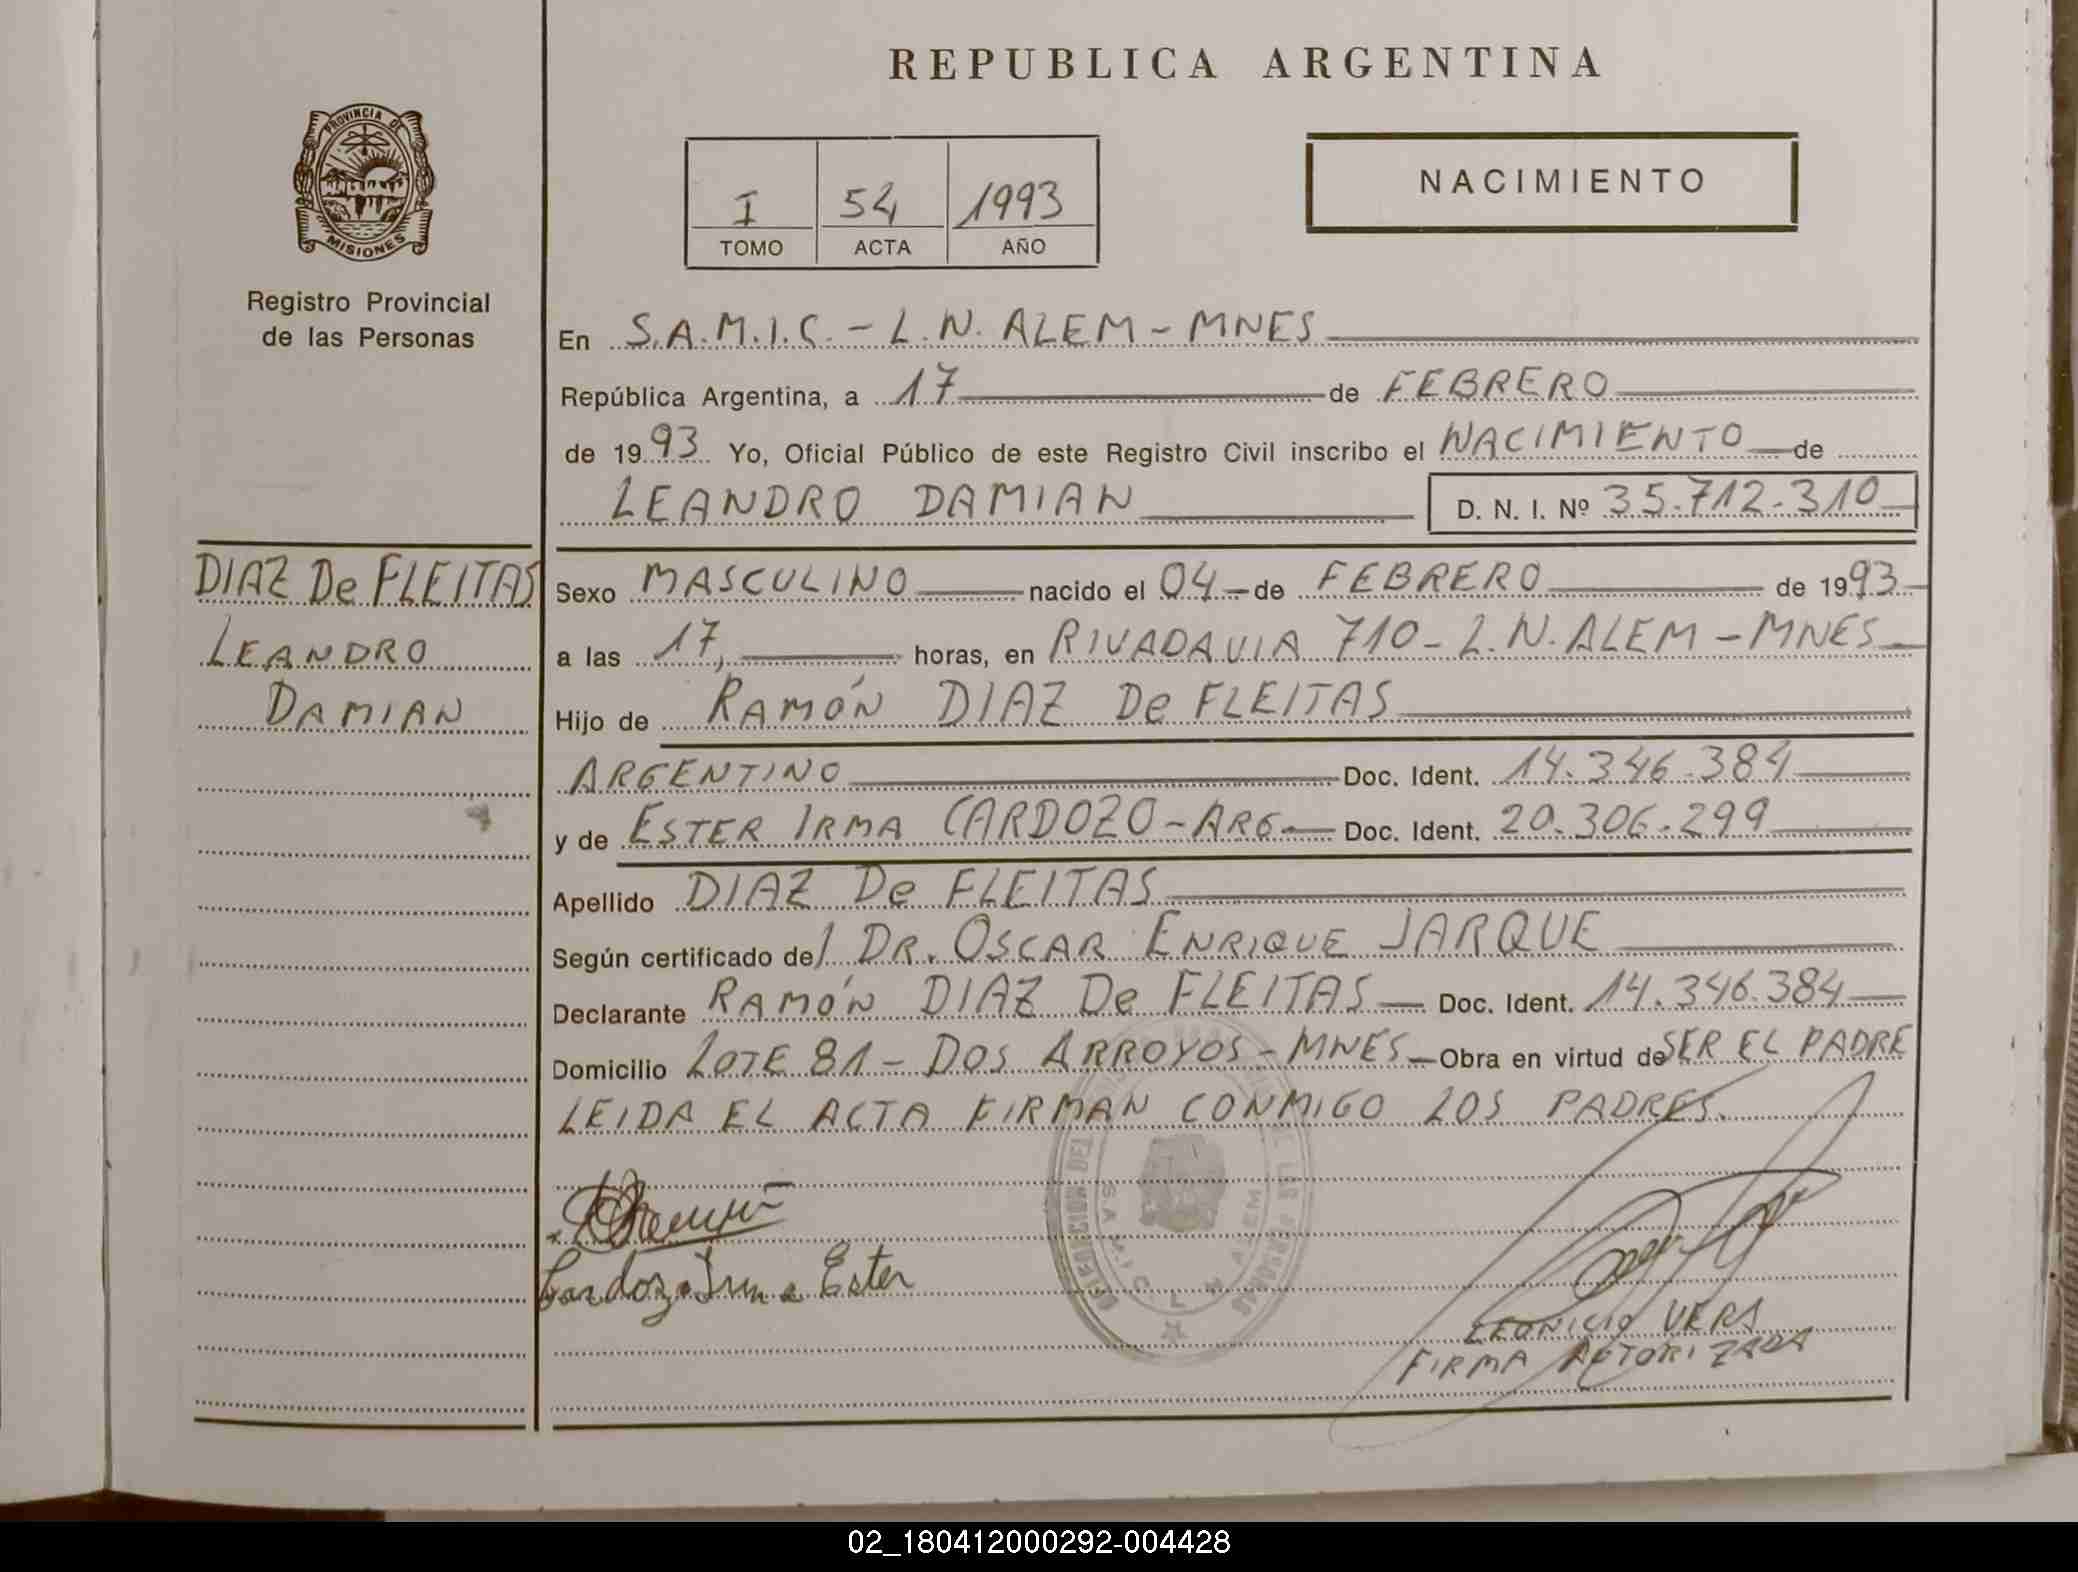 REPUBLICA ARGENTINA
PROVINCIA DE
MISIONES
Registro Provincial
de las Personas
I 54 1993
TOMO ACTA AÑO
NACIMIENTO
En S.A.M.I.C. - L.N. ALEM - MNES
República Argentina, a 17 de FEBRERO
de 1993 Yo, Oficial Público de este Registro Civil inscribo el NACIMIENTO de
LEANDRO DAMIAN D. N. I. Nº 35.712.310
DIAZ De FLEITAS
LEANDRO
DAMIAN
Sexo MASCULINO nacido el 04 de FEBRERO de 1993
a las 17, horas, en RIVADAVIA 710 - L.N. ALEM - MNES
Hijo de RAMÓN DIAZ De FLEITAS
ARGENTINO Doc. Ident. 14.346.384
y de ESTER IRMA CARDOZO - ARG. Doc. Ident. 20.306.299
Apellido DIAZ De FLEITAS
Según certificado del DR. OSCAR ENRIQUE JARQUE
Declarante RAMÓN DIAZ De FLEITAS Doc. Ident. 14.346.384
Domicilio LOTE 81 - DOS ARROYOS - MNES Obra en virtud de SER EL PADRE
LEIDA EL ACTA FIRMAN CONMIGO LOS PADRES.
Cardozo Irma Ester
LEONICIO VERA
FIRMA AUTORIZADA
02_180412000292-004428